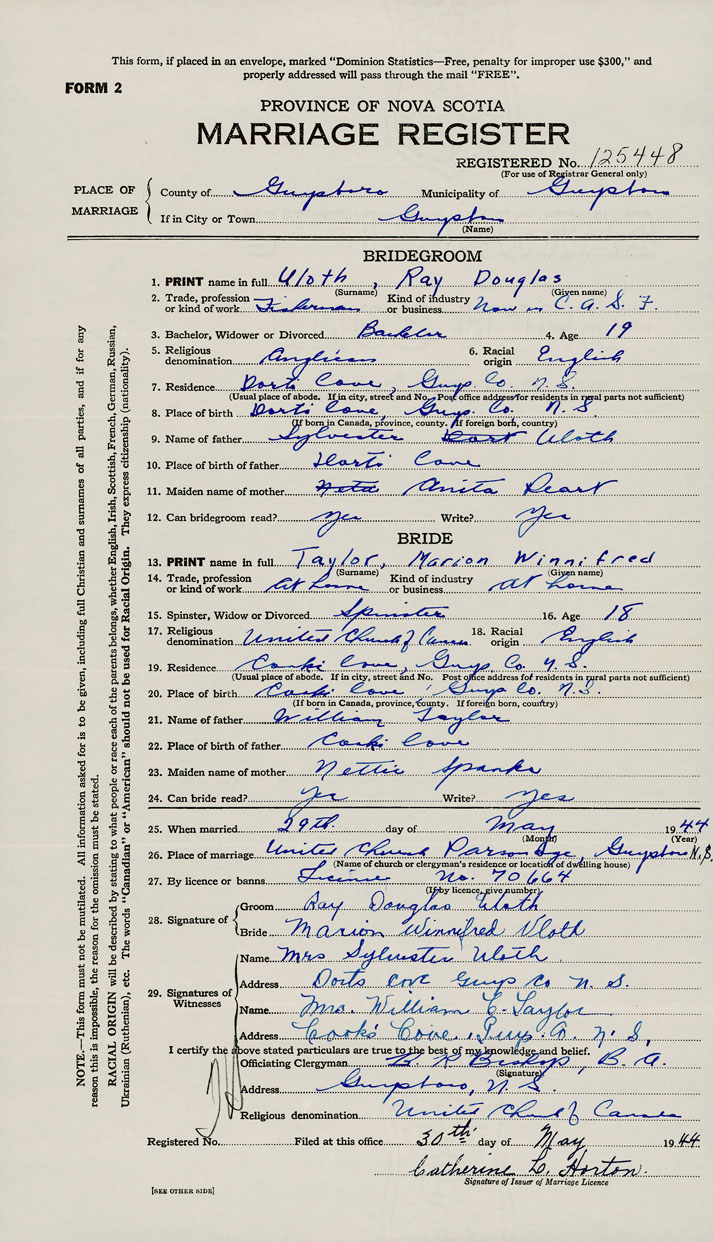 This form, if placed in an envelope, marked "Dominion Statistics—Free, penalty for improper use $300," and
properly addressed will pass through the mail "FREE".
FORM 2
PROVINCE OF NOVA SCOTIA
MARRIAGE REGISTER
REGISTERED No. 125448
(For use of Registrar General only)
PLACE OF MARRIAGE
County of Guysboro Municipality of Guysboro
If in City or Town Guysboro
(Name)
BRIDEGROOM
1. PRINT name in full Uloth, Ray Douglas
(Surname) (Given name)
2. Trade, profession or kind of work Fisherman Kind of industry or business Now in C. A. S. F.
3. Bachelor, Widower or Divorced Bachelor 4. Age 19
5. Religious denomination Anglican 6. Racial origin English
7. Residence Dorts Cove, Guys. Co. N. S.
(Usual place of abode. If in city, street and No. Post office address for residents in rural parts not sufficient)
8. Place of birth Dorts Cove, Guys. Co. N. S.
(If born in Canada, province, county. If foreign born, country)
9. Name of father Sylvester Uloth
10. Place of birth of father Dorts Cove
11. Maiden name of mother Anita Peart
12. Can bridegroom read? Yes Write? Yes
BRIDE
13. PRINT name in full Taylor, Marion Winnifred
(Surname) (Given name)
14. Trade, profession or kind of work At home Kind of industry or business At home
15. Spinster, Widow or Divorced Spinster 16. Age 18
17. Religious denomination United Church of Canada 18. Racial origin English
19. Residence Cooks Cove, Guys. Co. N. S.
(Usual place of abode. If in city, street and No. Post office address for residents in rural parts not sufficient)
20. Place of birth Cooks Cove, Guys Co. N. S.
(If born in Canada, province, county. If foreign born, country)
21. Name of father William Taylor
22. Place of birth of father Cooks Cove
23. Maiden name of mother Nettie Spanks
24. Can bride read? Yes Write? Yes
25. When married 29th. day of May 1944
(Month) (Year)
26. Place of marriage United Church Parsonage, Guysboro N.S.
(Name of church or clergyman's residence or location of dwelling house)
27. By licence or banns License No. 70664
(If by licence, give number)
28. Signature of
Groom Ray Douglas Uloth
Bride Marion Winnifred Uloth
29. Signatures of Witnesses
Name Mrs Sylvester Uloth
Address Dorts Cove Guys Co N. S.
Name Mrs. William E. Taylor
Address Cooks Cove, Guys. Co. N. S.
I certify the above stated particulars are true to the best of my knowledge and belief.
Officiating Clergyman Bishop, B. A.
(Signature)
Address Guysboro, N. S.
Religious denomination United Church of Canada
Registered No. Filed at this office 30th day of May 1944.
Catherine L. Horton.
Signature of Issuer of Marriage Licence
[SEE OTHER SIDE]
NOTE.—This form must not be mutilated. All information asked for is to be given, including full Christian and surnames of all parties, and if for any
reason this is impossible, the reason for the omission must be stated.
RACIAL ORIGIN will be described by stating to what people or race each of the parents belongs, whether English, Irish, Scottish, French, German, Russian,
Ukrainian (Ruthenian), etc. The words "Canadian" or "American" should not be used for Racial Origin. They express citizenship (nationality).